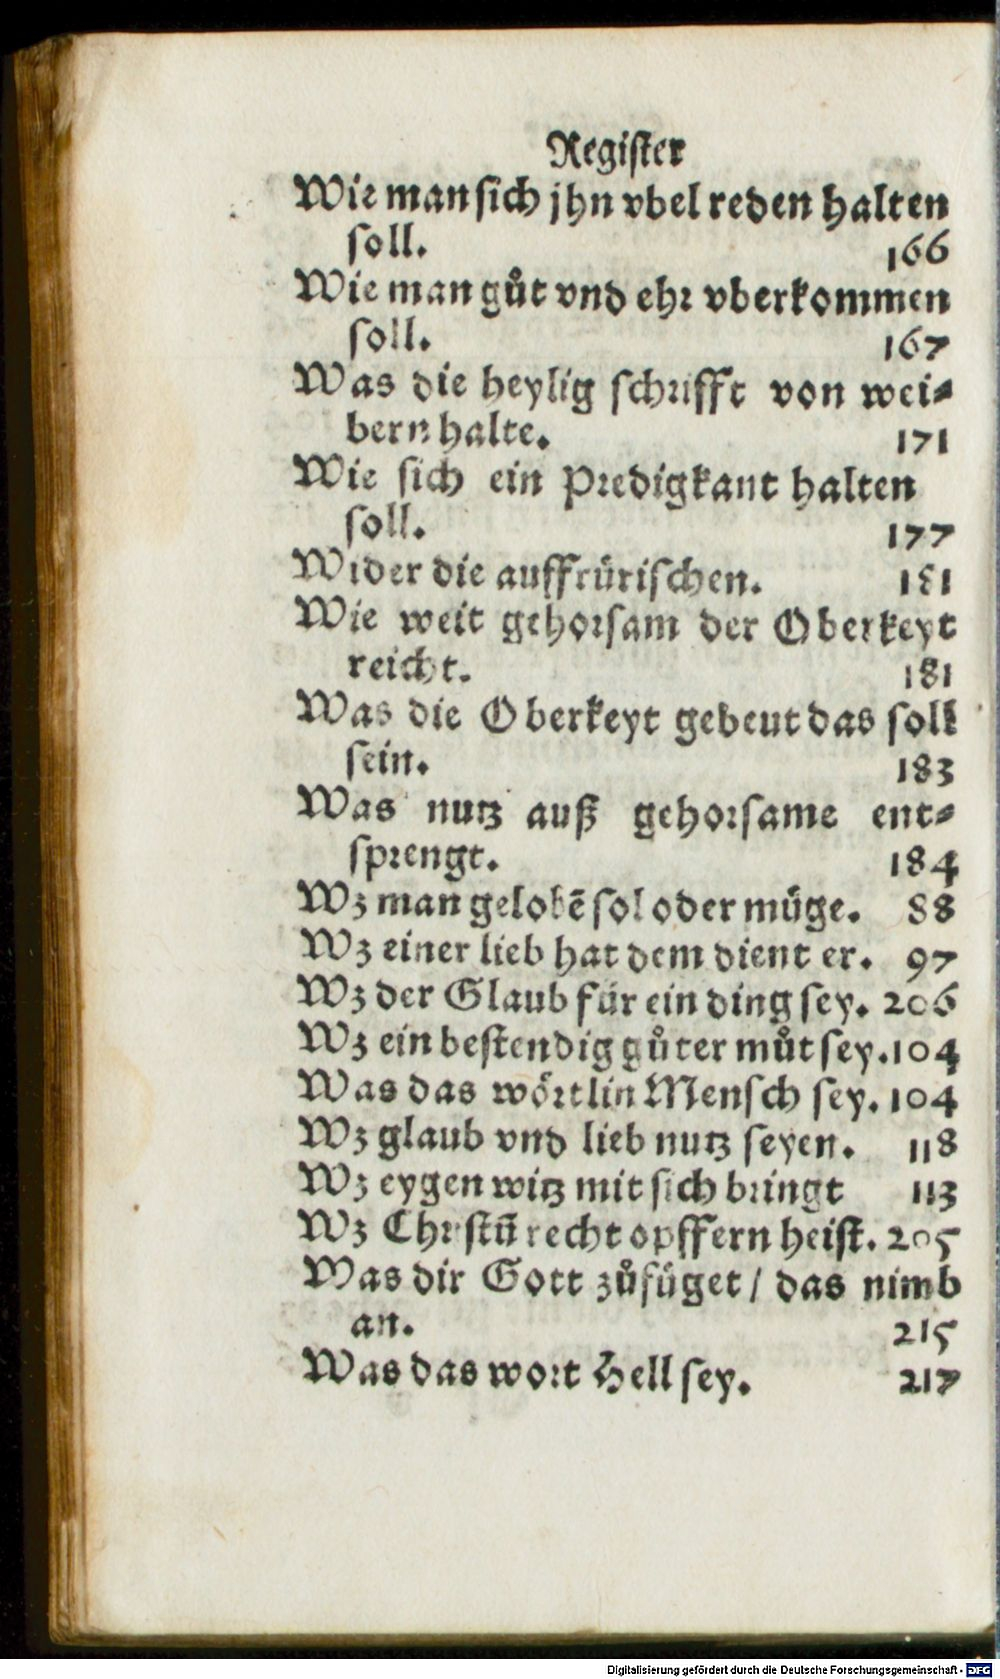 Register
Wie man sich jhn vbel reden halten
soll. 166
Wie man gůt vnd ehr vberkommen
soll. 167
Was die heylig schrifft von wei⸗
bern halte. 171
Wie sich ein Predigkant halten
soll. 177
Wider die auffrürischen. 181
Wie weit gehorsam der Oberkeyt
reicht. 181
Was die Oberkeyt gebeut das soll
sein. 183
Was nutz auß gehorsame ent⸗
sprengt. 184
Wz man gelobē sol oder müge. 88
Wz einer lieb hat dem dient er. 97
Wz der Glaub für ein ding sey. 206
Wz ein bestendig gůter můt sey. 104
Was das wörtlin Mensch sey. 104
Wz glaub vnd lieb nutz seyen. 118
Wz eygen witz mit sich bringt 113
Wz Christū recht opffern heist. 205
Was dir Gott zůfüget / das nimb
an. 215
Was das wort Hell sey. 217
Digitalisierung gefördert durch die Deutsche Forschungsgemeinschaft - DFG